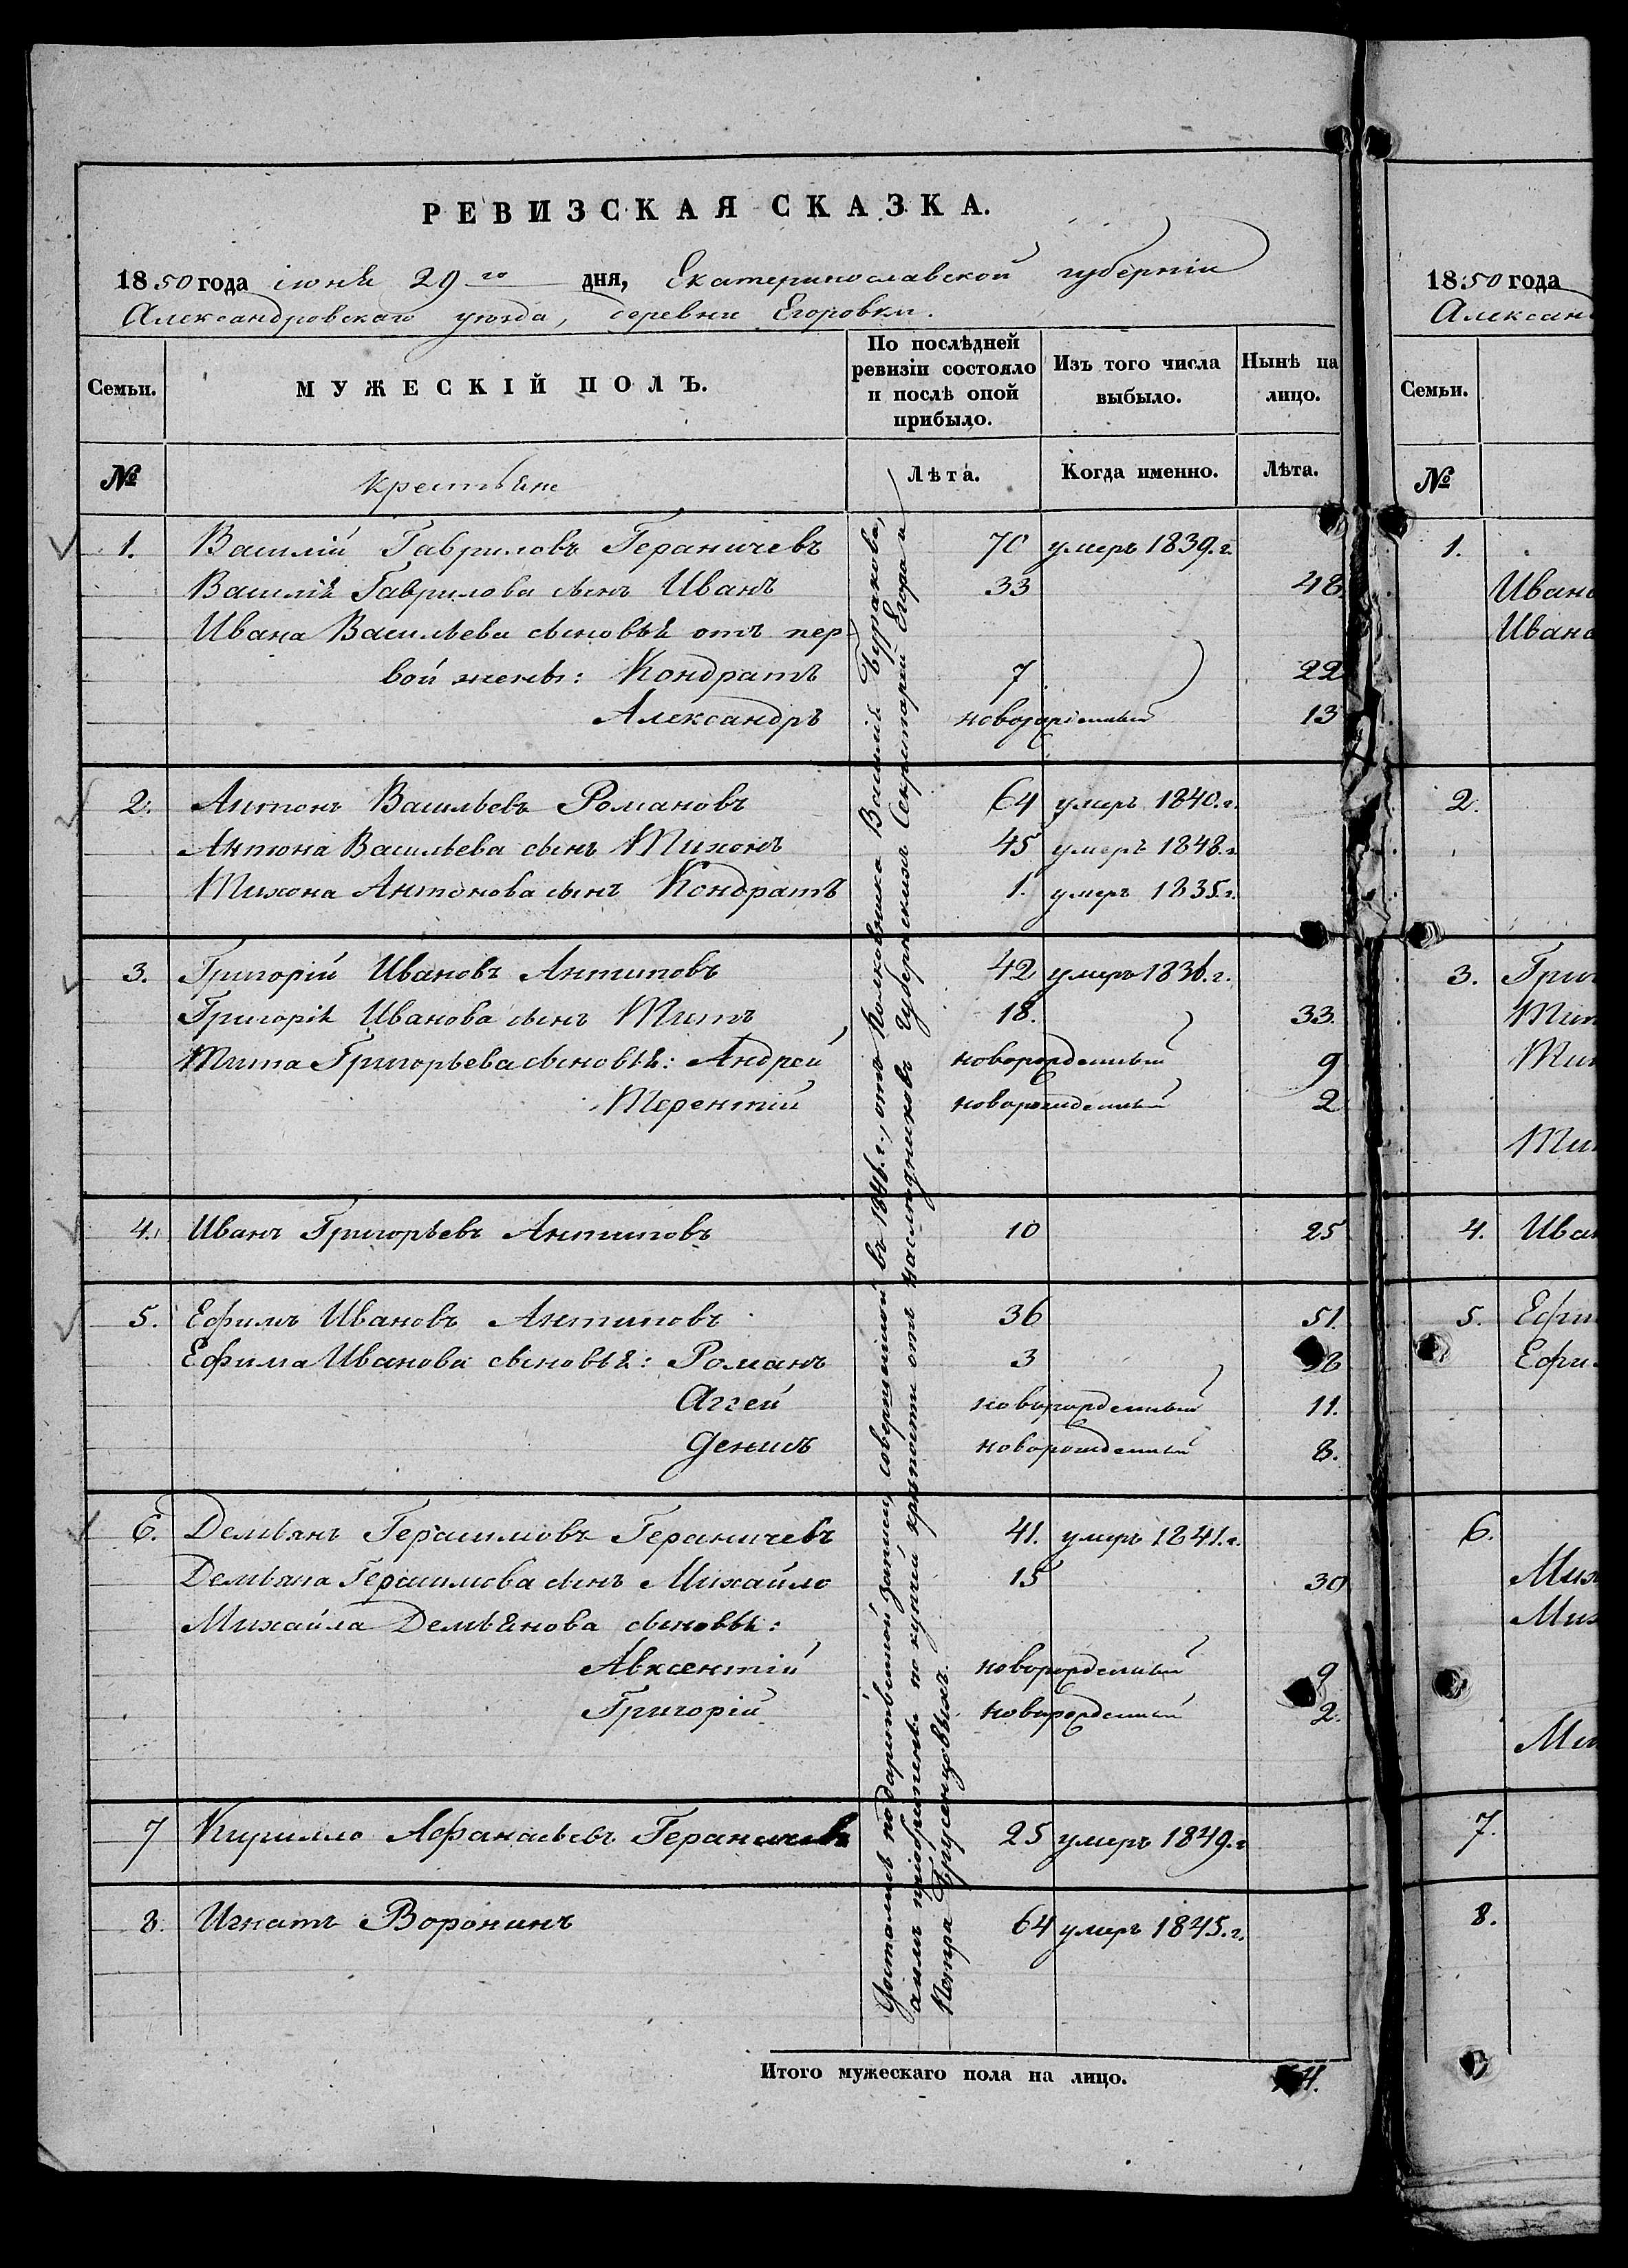 РЕВИЗСКАЯ СКАЗКА.
1850 года іюня 29го дня, Екатеринославской губерніи
Александровскаго уѣзда, деревни Егоровки.
Семьи. МУЖЕСКІЙ ПОЛЪ. По послѣдней ревизіи состояло и послѣ оной прибыло. Изъ того числа выбыло. Нынѣ на лицо.
№ Крестьяне Лѣта. Когда именно. Лѣта.
1. Василій Гавриловъ Гераничевъ 70 умеръ 1839.г.
Василія Гаврилова сынъ Иванъ 33 48.
Ивана Васильева сыновья отъ пер-
вой жены: Кондратъ 7. 22
Александръ новорожденный 13
2. Антонъ Васильевъ Романовъ 64 умеръ 1840.г.
Антона Васильева сынъ Тихонъ 45 умеръ 1848.г.
Тихона Антонова сынъ Кондратъ 1. умеръ 1835.г.
3. Григорій Ивановъ Антиповъ 42 умеръ 1836.г.
Григорія Иванова сынъ Титъ 18. 33.
Тита Григорьева сыновья: Андрей новорожденный 9
Терентій новорожденный 2
4. Иванъ Григорьевъ Антиповъ 10 25
5. Ефимъ Ивановъ Антиповъ 36 51.
Ефима Иванова сыновья: Романъ 3 8
Аггей новорожденный 11.
Денисъ новорожденный 8.
6. Демьянъ Герасимовъ Гераничевъ 41. умеръ 1841.г.
Демьяна Герасимова сынъ Михайло 15 30
Михайла Демьянова сыновья:
Авксентій новорожденный 9
Григорій новорожденный 2.
7 Кирилло Афанасьевъ Гераничевъ 25 умеръ 1849.г
8. Игнатъ Воронинъ 64 умеръ 1845.г.
Достались по дарственной записи, совершенной въ 1846.г., отъ Полковника Василія Буракова,
а имъ пріобрѣтены по купчей крѣпости отъ наслѣдниковъ Губернскихъ Секретарей Егора и
Петра Брусенцовыхъ.
Итого мужескаго пола на лицо. 4.
1850 года
Александ
Семьи.
№
1.
Ивано
Ивано
2.
3. Григ
Тит
Тит
Тит
4. Иван
5. Ефи
Ефи
6.
Мих
Мих
Мих
7.
8.